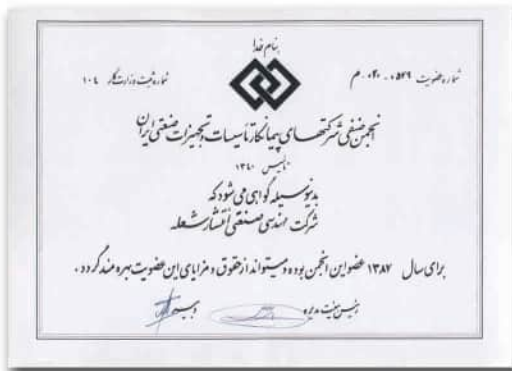 بنام خدا
شماره عضویت ۰۵۴۹ . ۰۴۰ . م
شماره ثبت وزارت کار ۱۰۴
انجمن صنفی شرکتهای پیمانکار تأسیسات و تجهیزات صنعتی ایران
تأسیس ۱۳۴۰
بدینوسیله گواهی می شود که
شرکت مهندسی صنعتی افشار شعله
برای سال ۱۳۸۷ عضو این انجمن بوده و میتواند از حقوق و مزایای این عضویت بهره مند گردد .
رئیس هیئت مدیره
دبیر